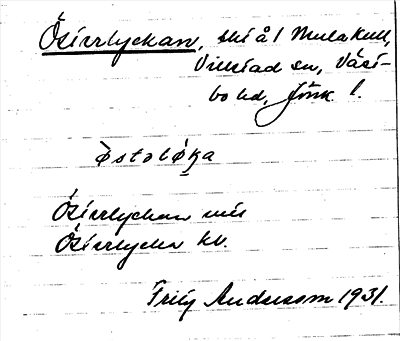 Österlyckan, sk i ål Mulakull,
Villstad sn, Väst-
bo hd, Jönk. l.
østəl​øka
Österlyckan mis
Österlycka kv.
Fritz Andersson 1931.